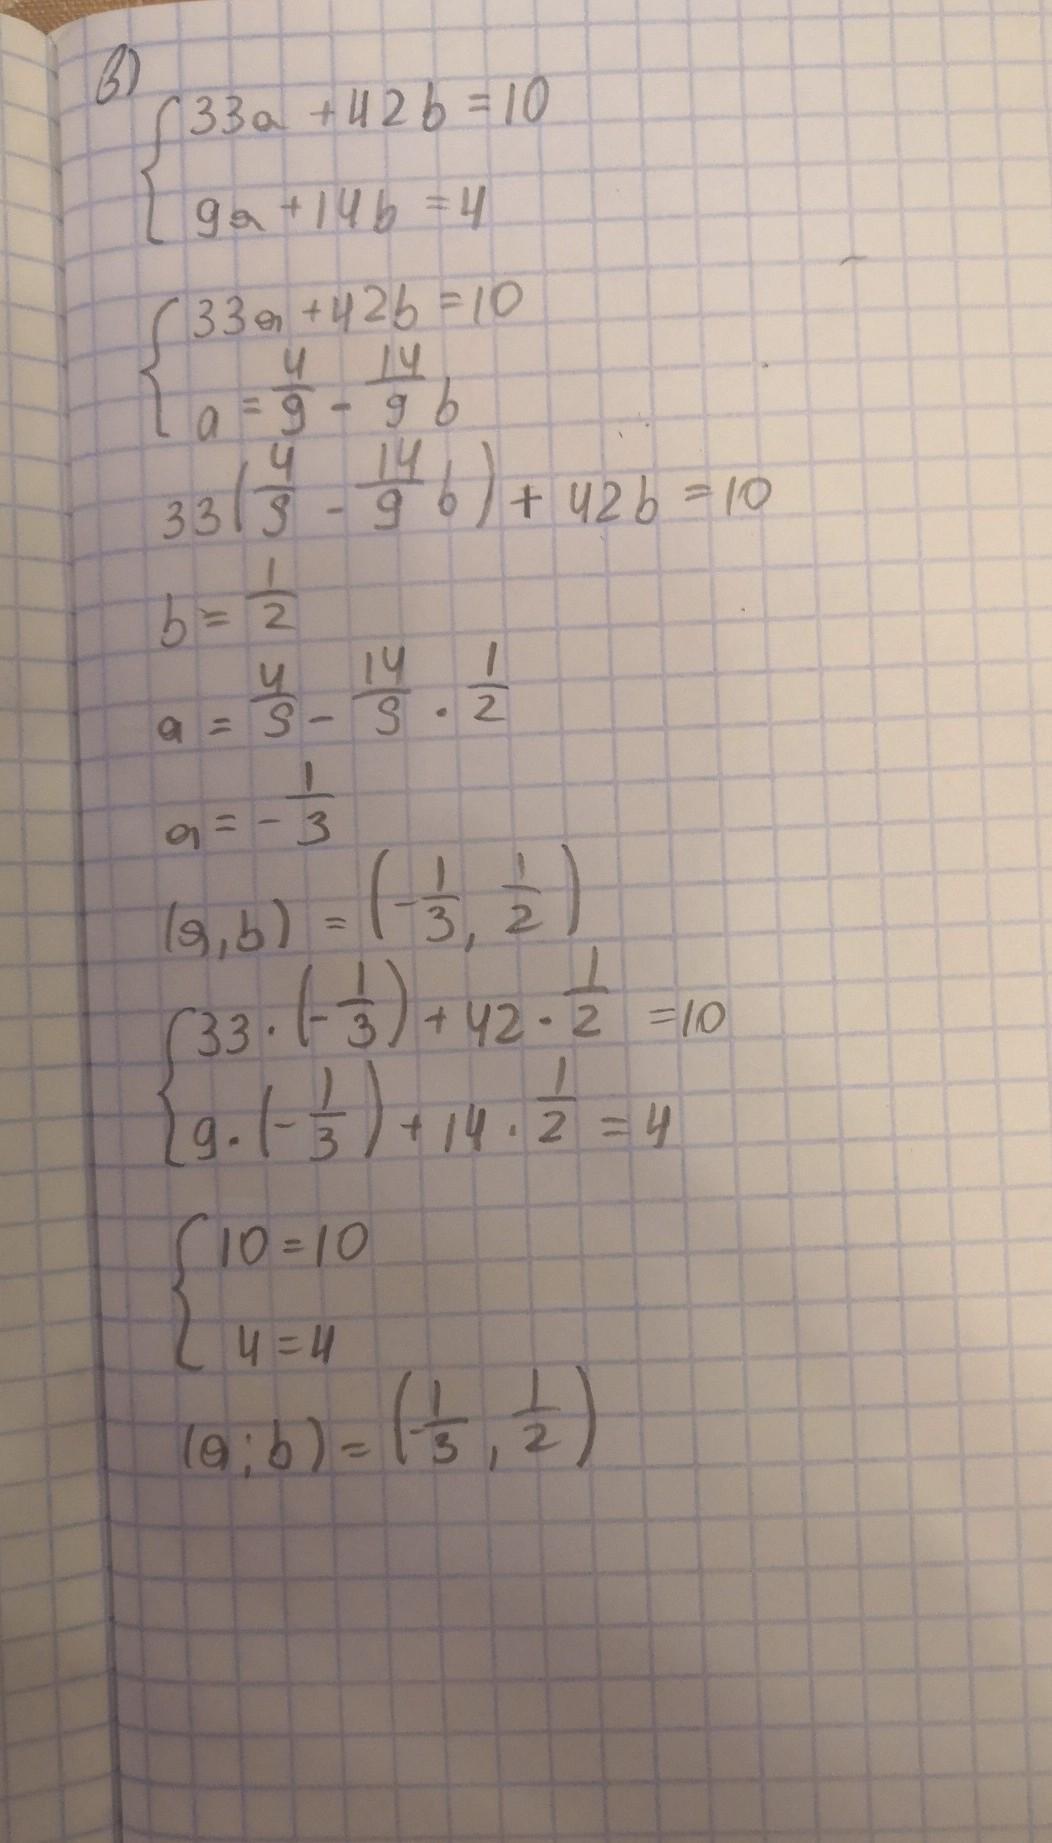 в)
{ 33a + 42b = 10
9a + 14b = 4
{ 33a + 42b = 10
a = 4/9 - 14/9 b
33(4/9 - 14/9 b) + 42b = 10
b = 1/2
a = 4/9 - 14/9 · 1/2
a = - 1/3
(a, b) = (-1/3, 1/2)
{ 33 · (-1/3) + 42 · 1/2 = 10
9 · (-1/3) + 14 · 1/2 = 4
{ 10 = 10
4 = 4
(a; b) = (-1/3, 1/2)